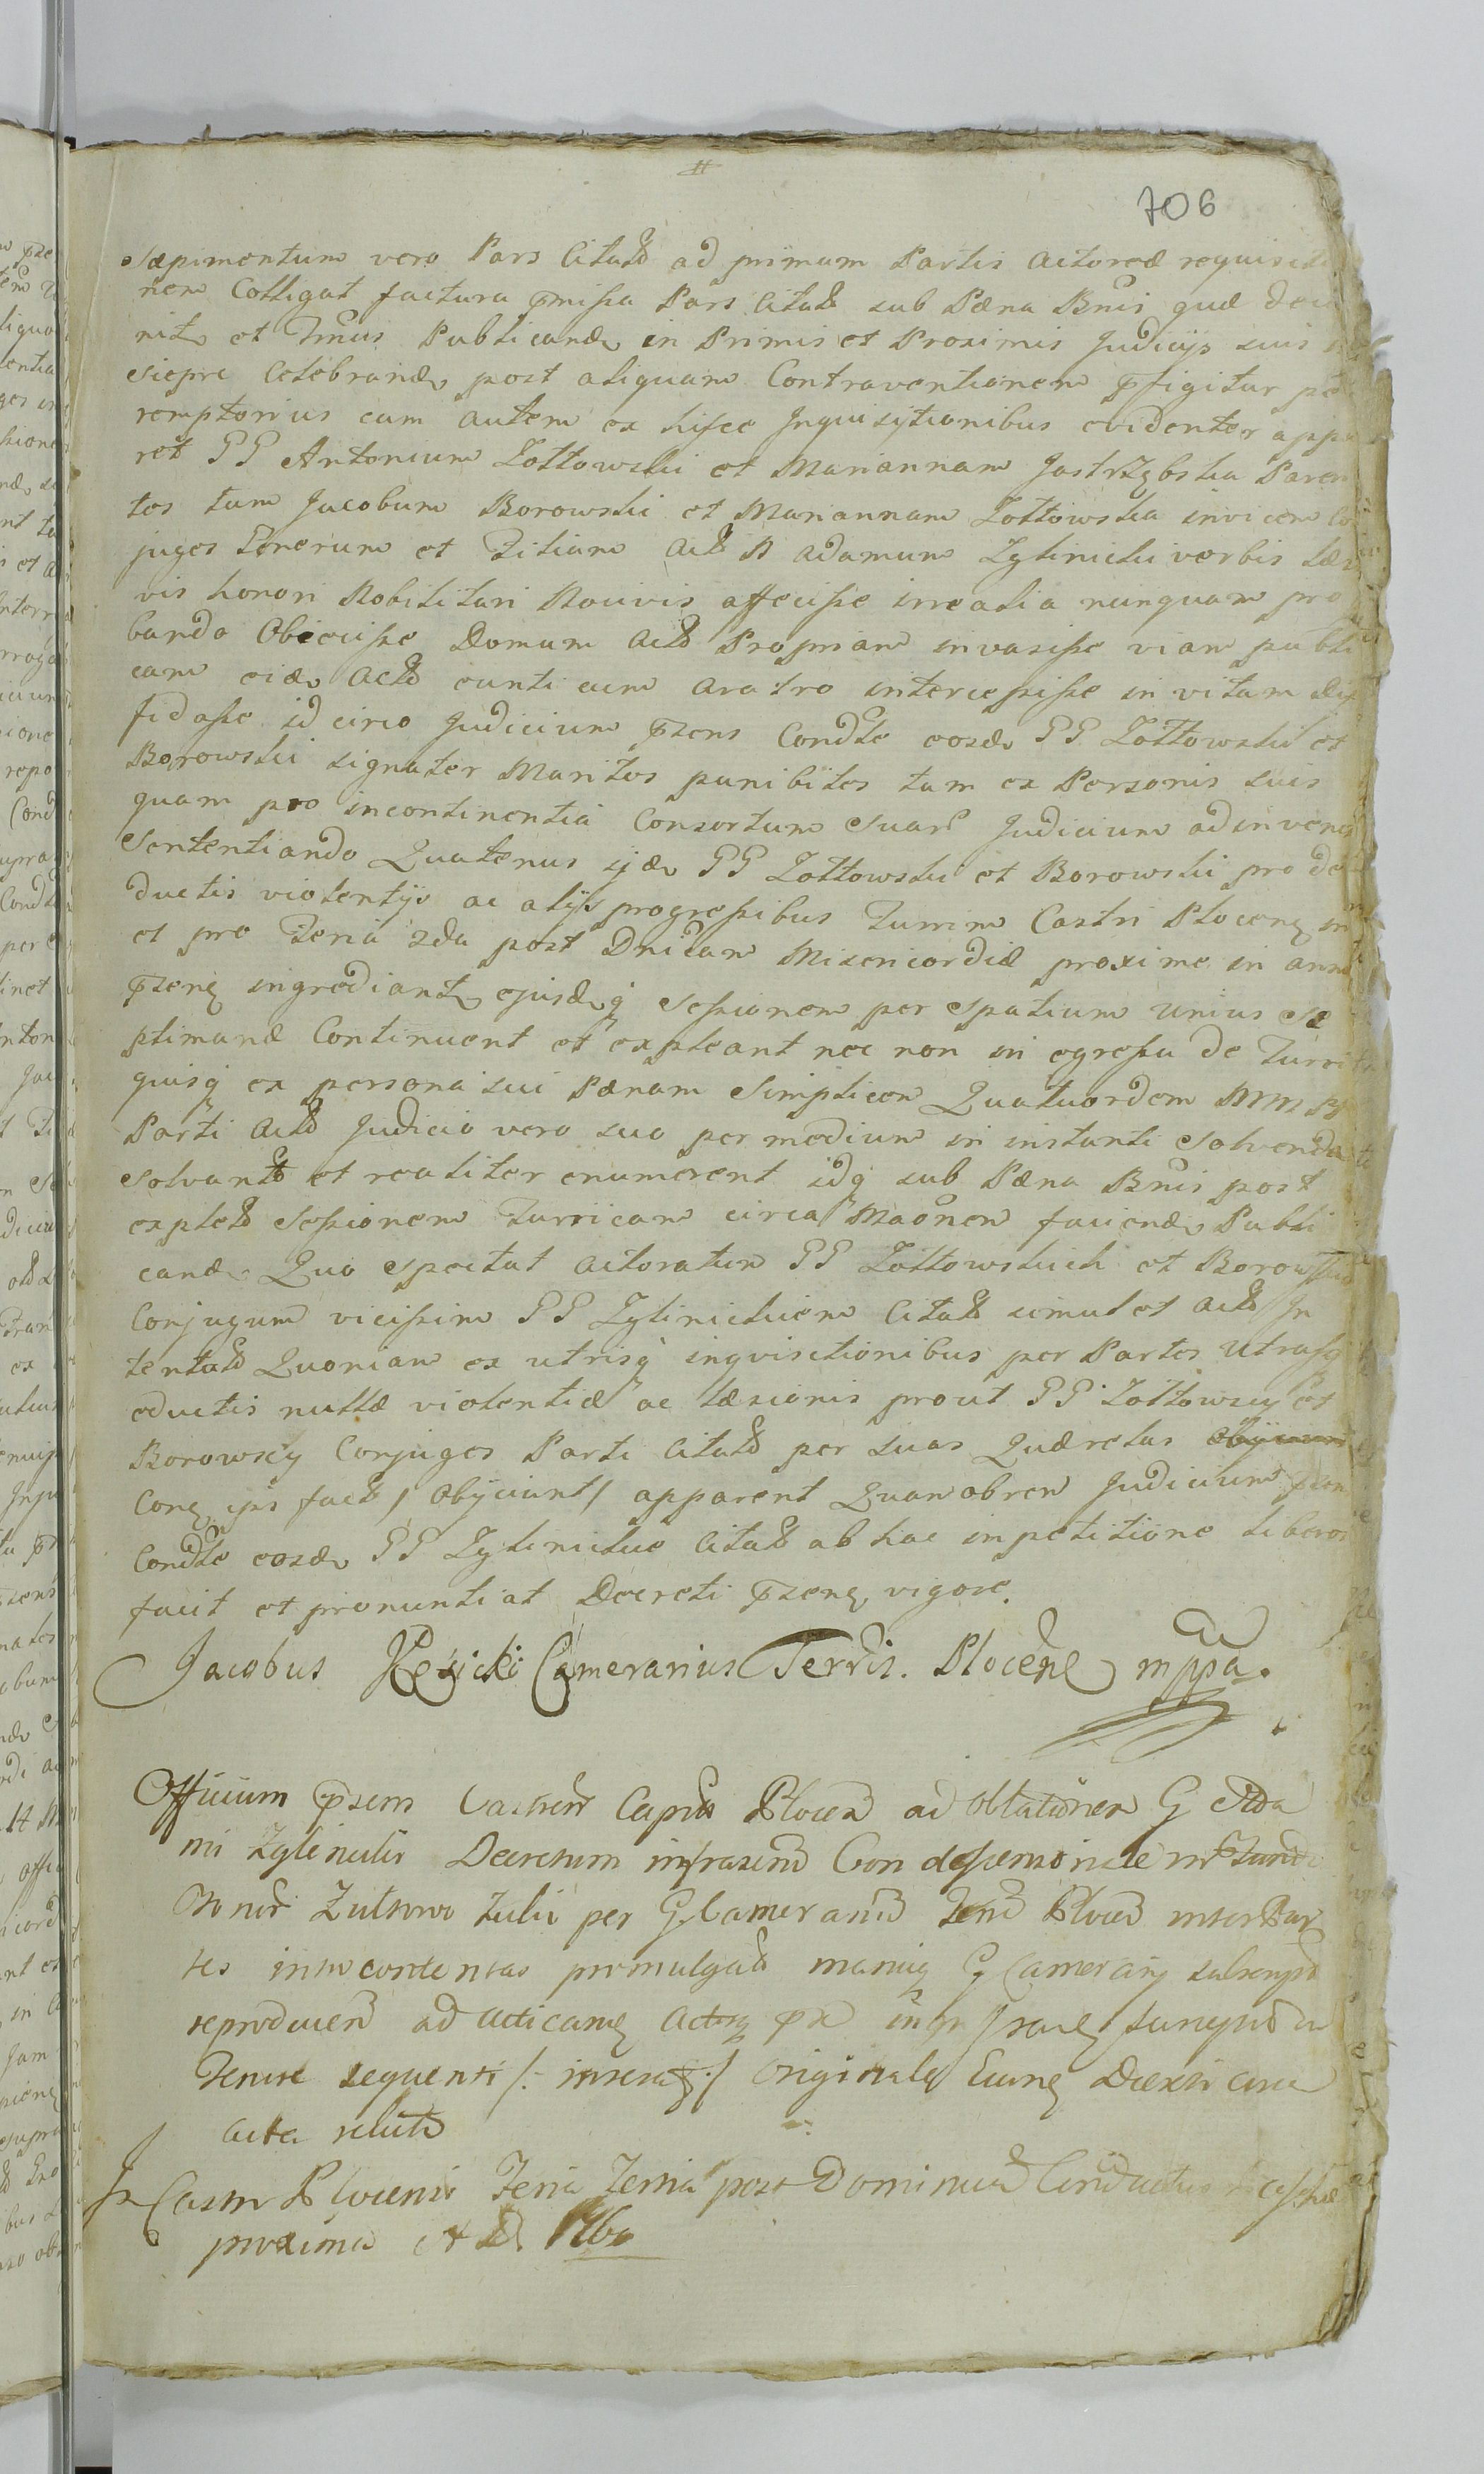 706
Sæpimentum vero Pars Citata ad primam Partis Actoreæ requisitio
nem Colligat factura pmissa Pars Citata sub Pæna Bnis quæ
nitr et Tmus Publicandr in Primis et Proximis Judicijs suis
siepre Celebrandr post aliquam Contraventionem pfigitur pe
remptorius cum autem ex hisce Inquisitionibus evidenter appa
ret GG Antonium Zottowski et Mariannam Jastrzębska Paren
tes tum Jacobum Borowski et Mariannam Zottowska invicem Co
juges Generum et Filiam Act N Adamum Zglinicki verbis læsi
vis honori Nobilitari Nocivis affecisse irrealia nunquam pro
bando Obiecisse Domum Acto Propriam invasisse viam publi
cam eidr Acto eunti cum aratro intercepisse in vitam dif
fidasse id circo Judicium pzens Condle eosdr GG Zottowski et
Borowski signater Maritos punibiles tam ex Personis suis
quam pro incontinentia Consortum Suar Judicium adinvenit
Sententiando Quatenus ijdr GG Zottowski et Borowski pro de
ductis violentijs ac alijs progressibus Turrim Castri Plocen in
et pro Feria 2da post Dnicam Misericordiæ proxime in anno
pzen ingrediantr ejusdrq Sessionem per Spatium unius Se
ptimanæ Continuent et expleant nec non in egressu de Turri
quisq ex persona sui Pænam Simplicem Quatuordem MM P
Parti Acto Judicio vero suo per medium in instanti Solvenda
Solvant et realiter enumerent idq sub Pæna Bnis post
explet Sessionem Turricam circa Maonem faciendr Publi
candr Quo Spectat Actoratum GG Zottowskich et Borowskich
Conjugum vicissim GG Zglinickiem Citato simul et Acto In
tentato Quoniam ex utrisq inqvisitionibus per Partes Utrasq
eductis nullæ violentiæ ac læsionis prout GG Zottowscy et
Borowscy Conjuges Parti Citato per suas Quærelas
Con ips fact / Obijciunt / apparent Quamobrem Judicium pzen
Condle eosdr GG Zglinickie Citato ab hac impetitione liberos
facit et pronuntiat Decreti pzen vigore.
Jacobus Camerarius Terris. Plocen mppa.
Officium pzens Castren Capit Plocen ad Oblationem G Ada
mi Zglinicki Decretum infrascrip Condescensoriale in Fundo
Bonor per G Camerariu Plocen inter Par
tes introcontentas promulgat manuq G Camerarij subscript
reproducen ad acticand suscepit
Tenore sequenti /: inserat :/ Originale
acta relicto
In Castro Plocensi Feria Tertia post Dominica Conductus Paschæ
proxima A D 1760